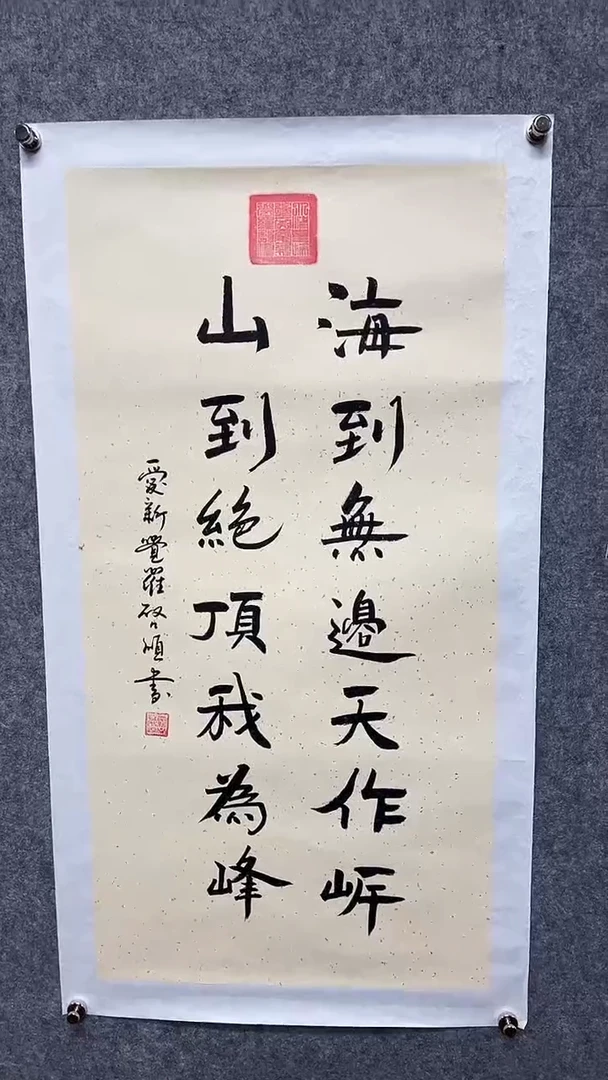 海到無邊天作岍
山到絕頂我為峰
愛新覺羅啓順書